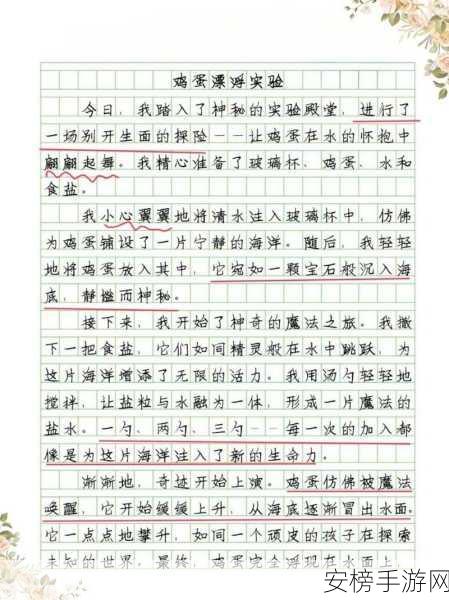 鸡蛋漂浮实验
今日，我踏入了神秘的实验殿堂，进行了
一场别开生面的探险——让鸡蛋在水的怀抱中
翩翩起舞。我精心准备了玻璃杯、鸡蛋、水和
食盐。
我小心翼翼地将清水注入玻璃杯中，仿佛
为鸡蛋铺设了一片宁静的海洋。随后，我轻轻
地将鸡蛋放入其中，它宛如一颗宝石般沉入海
底，静谧而神秘。
接下来，我开始了神奇的魔法之旅。我撒
下一把食盐，它们如同精灵般在水中跳跃，为
这片海洋增添了无限的活力。我用汤勺轻轻地
搅拌，让盐粒与水融为一体，形成一片魔法的
盐水。一勺、两勺、三勺——每一次的加入都
像是为这片海洋注入了新的生命力。
渐渐地，奇迹开始上演。鸡蛋仿佛被魔法
唤醒，它开始缓缓上升，从海底逐渐冒出水面。
它一点点地攀升，如同一个顽皮的孩子在探索
未知的世界。最终，鸡蛋完全浮现在水面上，
安榜手游网